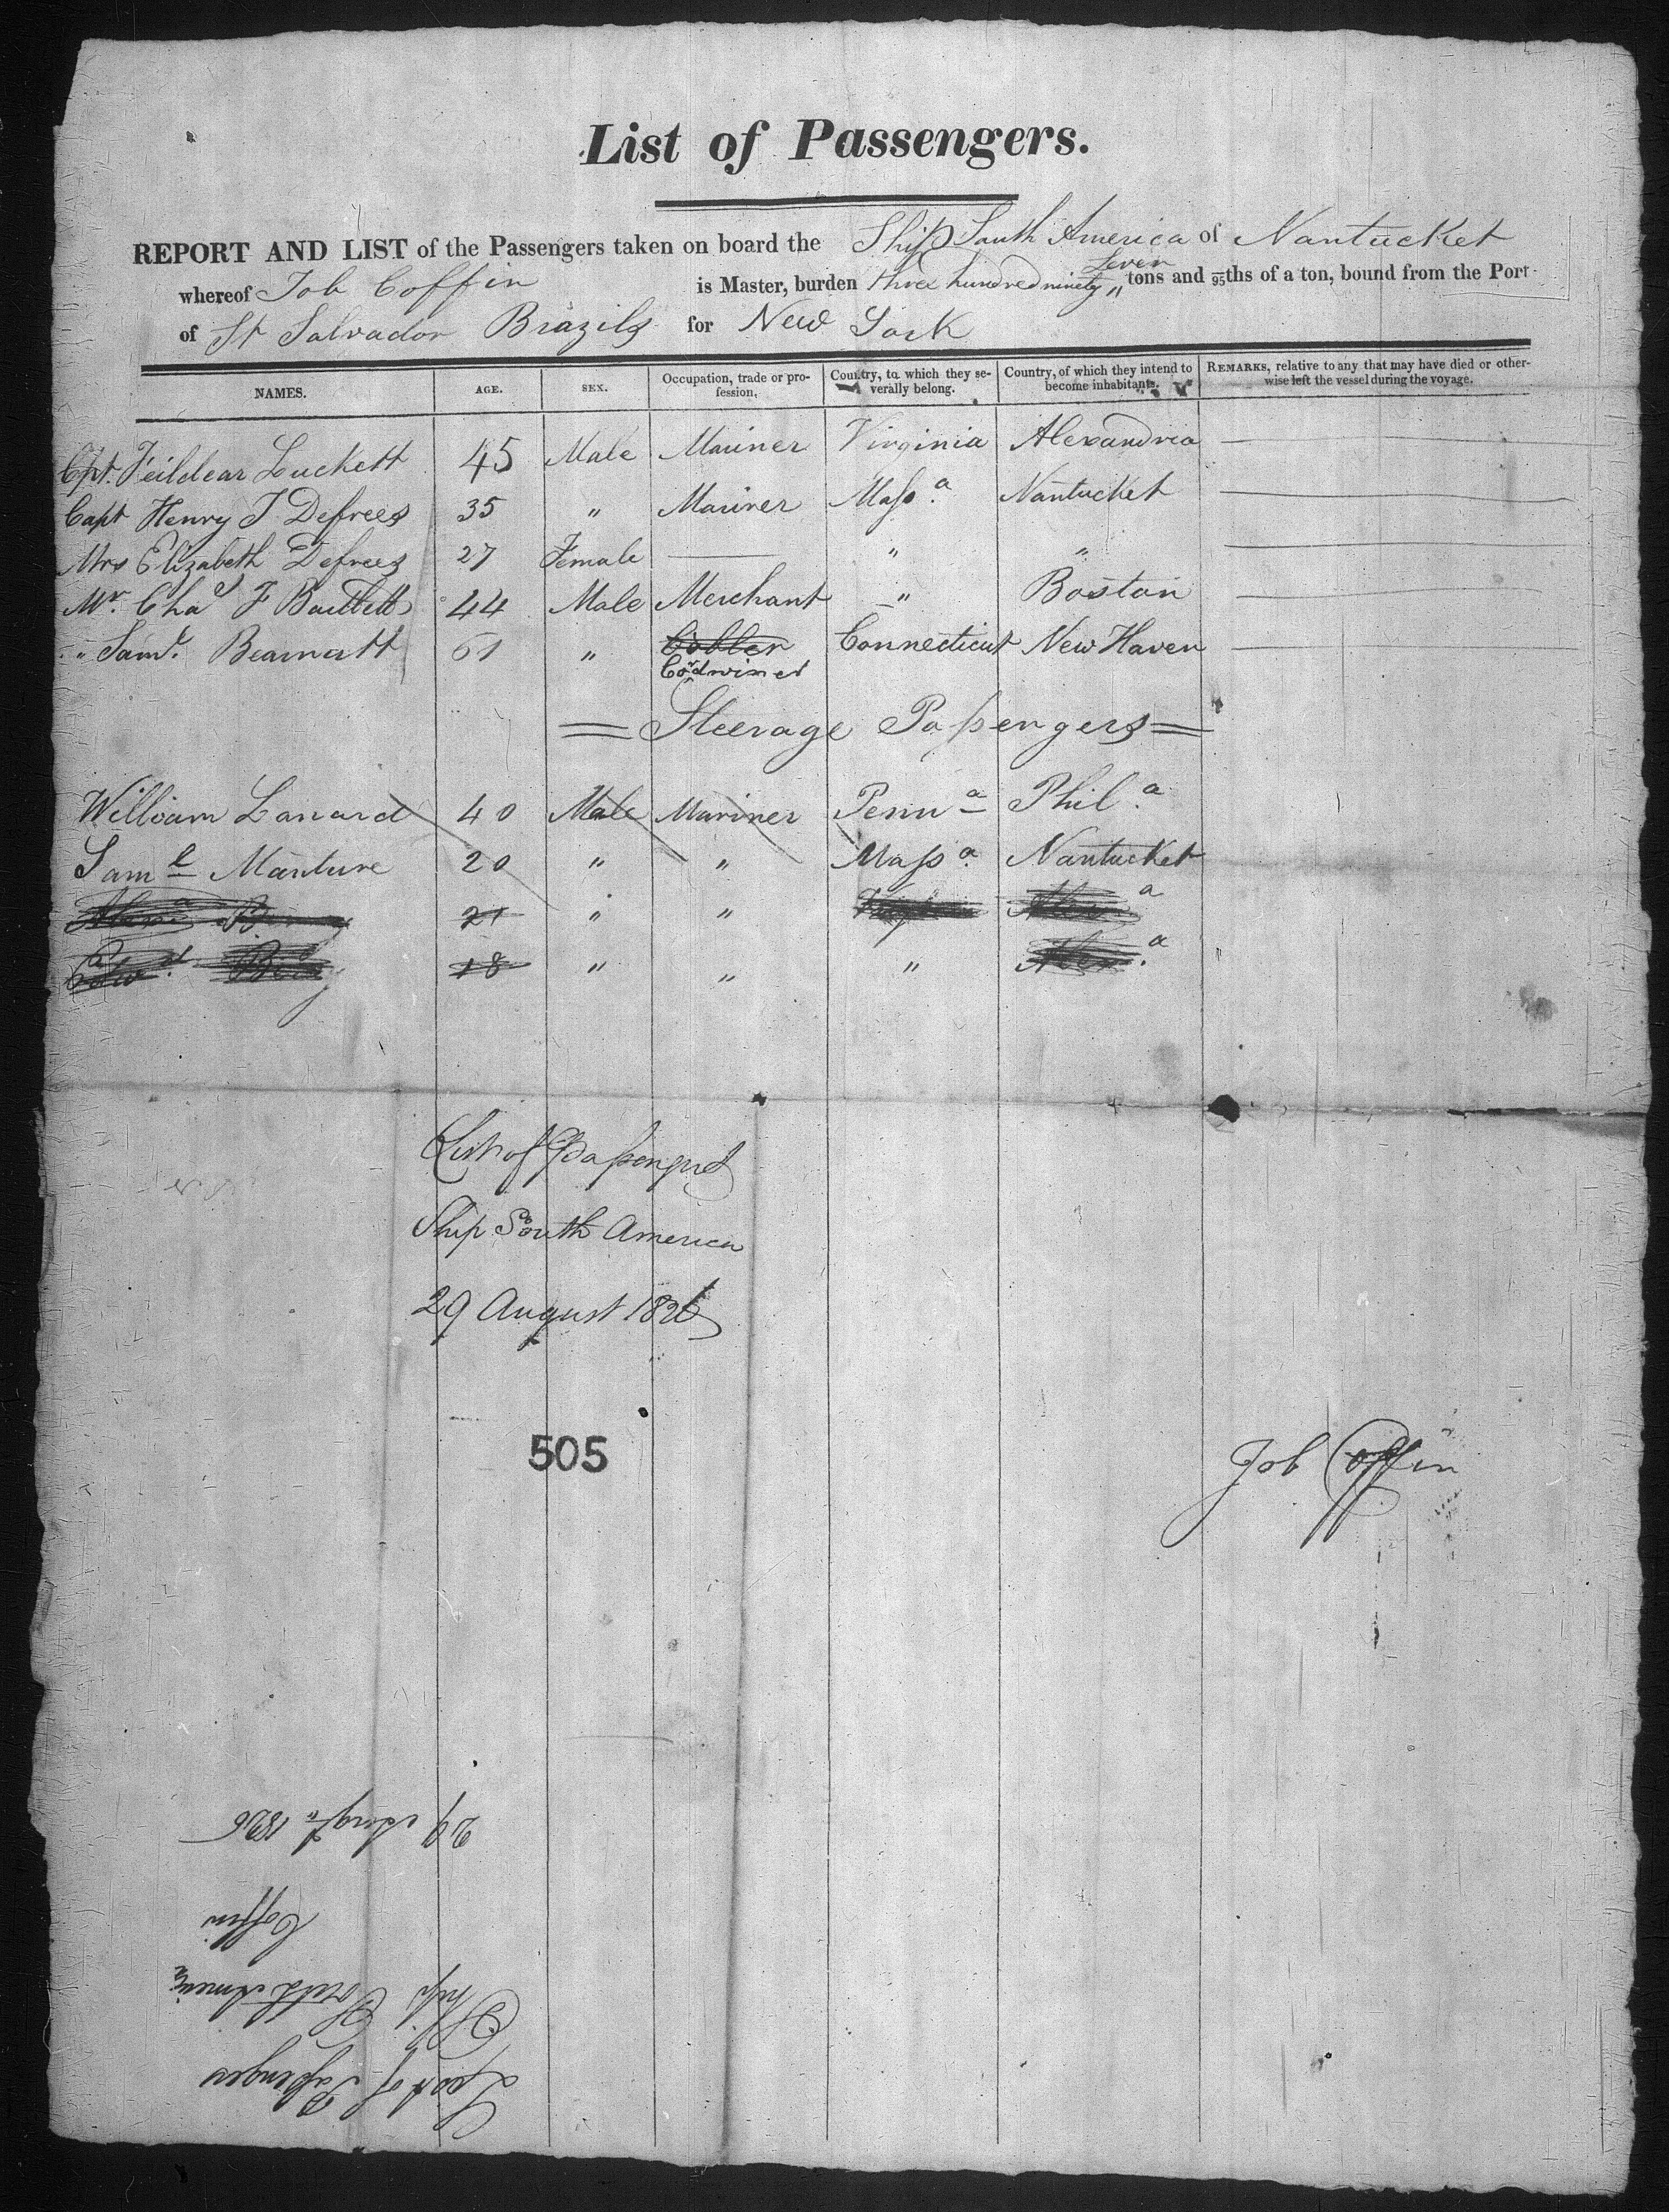 List of Passengers.
REPORT AND LIST of the Passengers taken on board the Ship South America of Nantucket
whereof Job Coffin is Master, burden three hundred ninety seven tons and 95ths of a ton, bound from the Port
of St Salvador Brazils for New York
NAMES. AGE. SEX. Occupation, trade or profession, Country, to which they severally belong. Country, of which they intend to become inhabitants. REMARKS, relative to any that may have died or otherwise left the vessel during the voyage.
Cpt. Feildear Luckett 45 Male Mariner Virginia Alexandria —
Capt Henry J Defrees 35 " Mariner Mass.a Nantucket —
Mrs Elizabeth Defrees 27 Female — " " —
Mr. Chas F Bartlett 44 Male Merchant " Boston —
" Saml. Bearnett 61 " Cobler Connecticut New Haven —
Cordwiner
= Steerage Passengers =
William Lanard 40 Male Mariner Penna Phil.a
Saml Manture 20 " " Massa. Nantucket
21 " "
18 " " "
List of Passengers
Ship South America
29 August 1826
505
Job Coffin
List of Passengers
Ship South America
Coffin
29 Augt. 1826